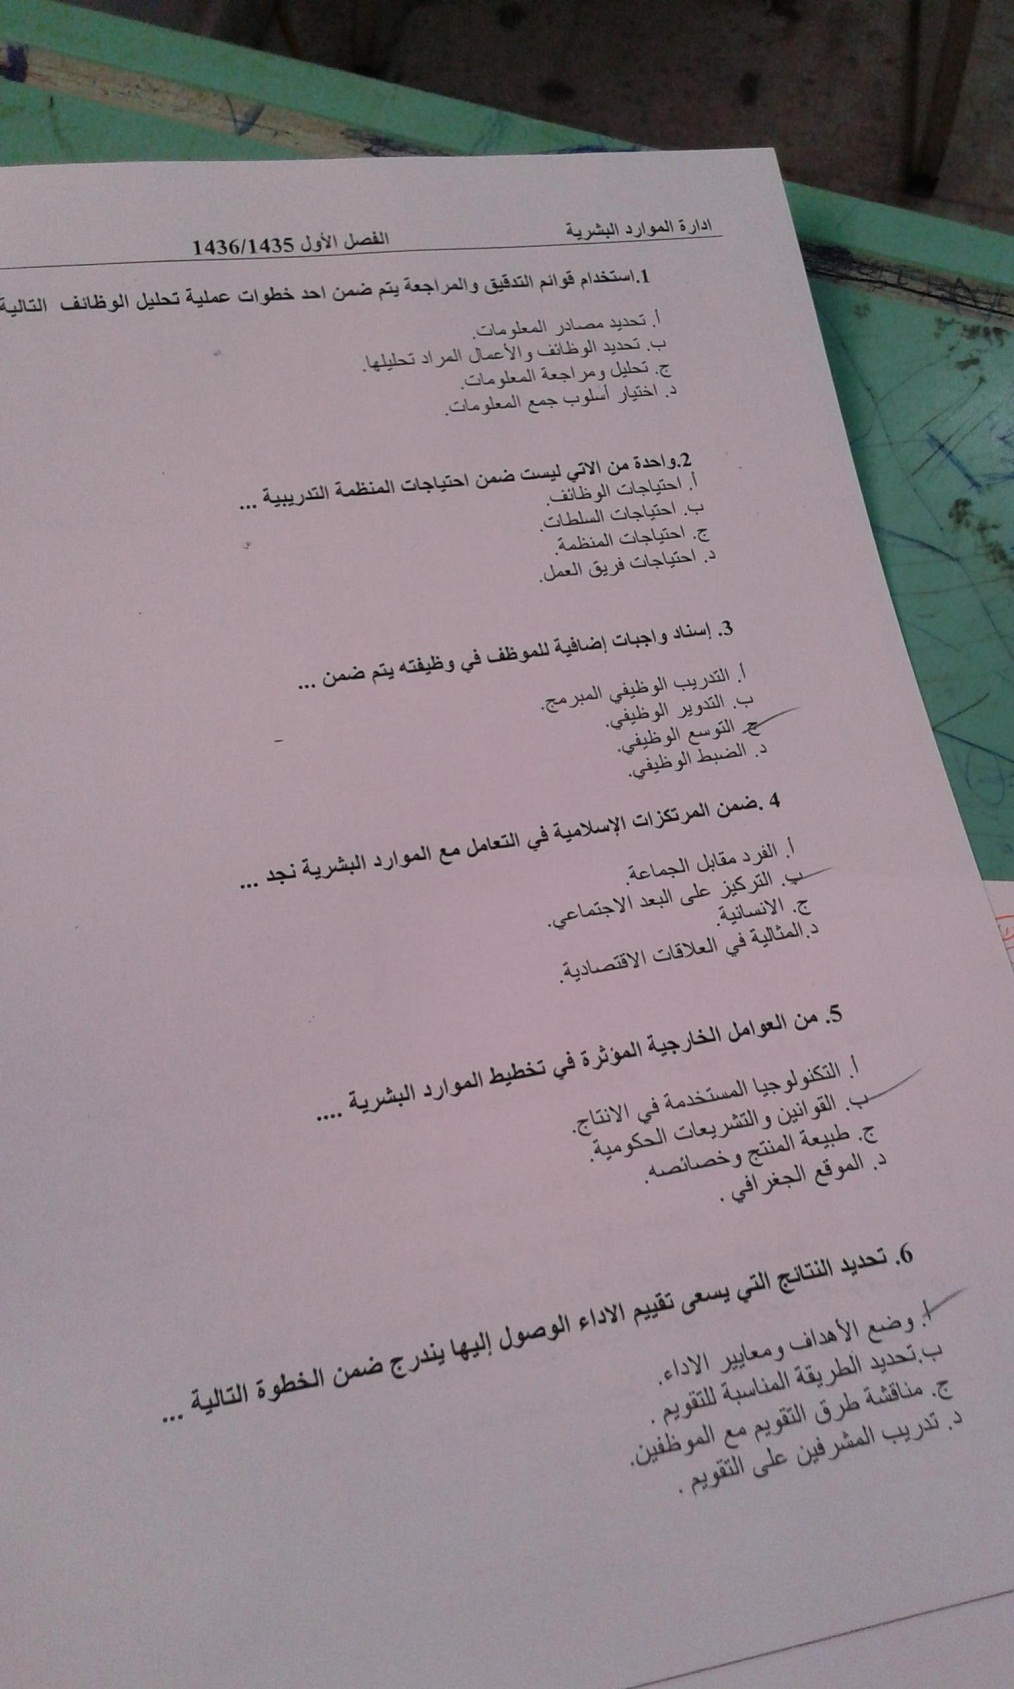 ادارة الموارد البشرية
الفصل الأول 1436/1435
1.استخدام قوائم التدقيق والمراجعة يتم ضمن احد خطوات عملية تحليل الوظائف التالية
أ. تحديد مصادر المعلومات.
ب. تحديد الوظائف والأعمال المراد تحليلها.
ج. تحليل ومراجعة المعلومات.
د. اختيار أسلوب جمع المعلومات.
2.واحدة من الاتي ليست ضمن احتياجات المنظمة التدريبية ...
أ. احتياجات الوظائف.
ب. احتياجات السلطات.
ج. احتياجات المنظمة.
د. احتياجات فريق العمل.
3. إسناد واجبات إضافية للموظف في وظيفته يتم ضمن ...
أ. التدريب الوظيفي المبرمج.
ب. التدوير الوظيفي.
ج. التوسع الوظيفي.
د. الضبط الوظيفي.
4 .ضمن المرتكزات الإسلامية في التعامل مع الموارد البشرية نجد ...
أ. الفرد مقابل الجماعة.
ب. التركيز على البعد الاجتماعي.
ج. الانسانية.
د.المثالية في العلاقات الاقتصادية.
5. من العوامل الخارجية المؤثرة في تخطيط الموارد البشرية ....
أ. التكنولوجيا المستخدمة في الانتاج.
ب. القوانين والتشريعات الحكومية.
ج. طبيعة المنتج وخصائصه.
د. الموقع الجغرافي .
6. تحديد النتائج التي يسعى تقييم الاداء الوصول إليها يندرج ضمن الخطوة التالية ...
أ. وضع الأهداف ومعايير الاداء.
ب.تحديد الطريقة المناسبة للتقويم .
ج. مناقشة طرق التقويم مع الموظفين.
د. تدريب المشرفين على التقويم .